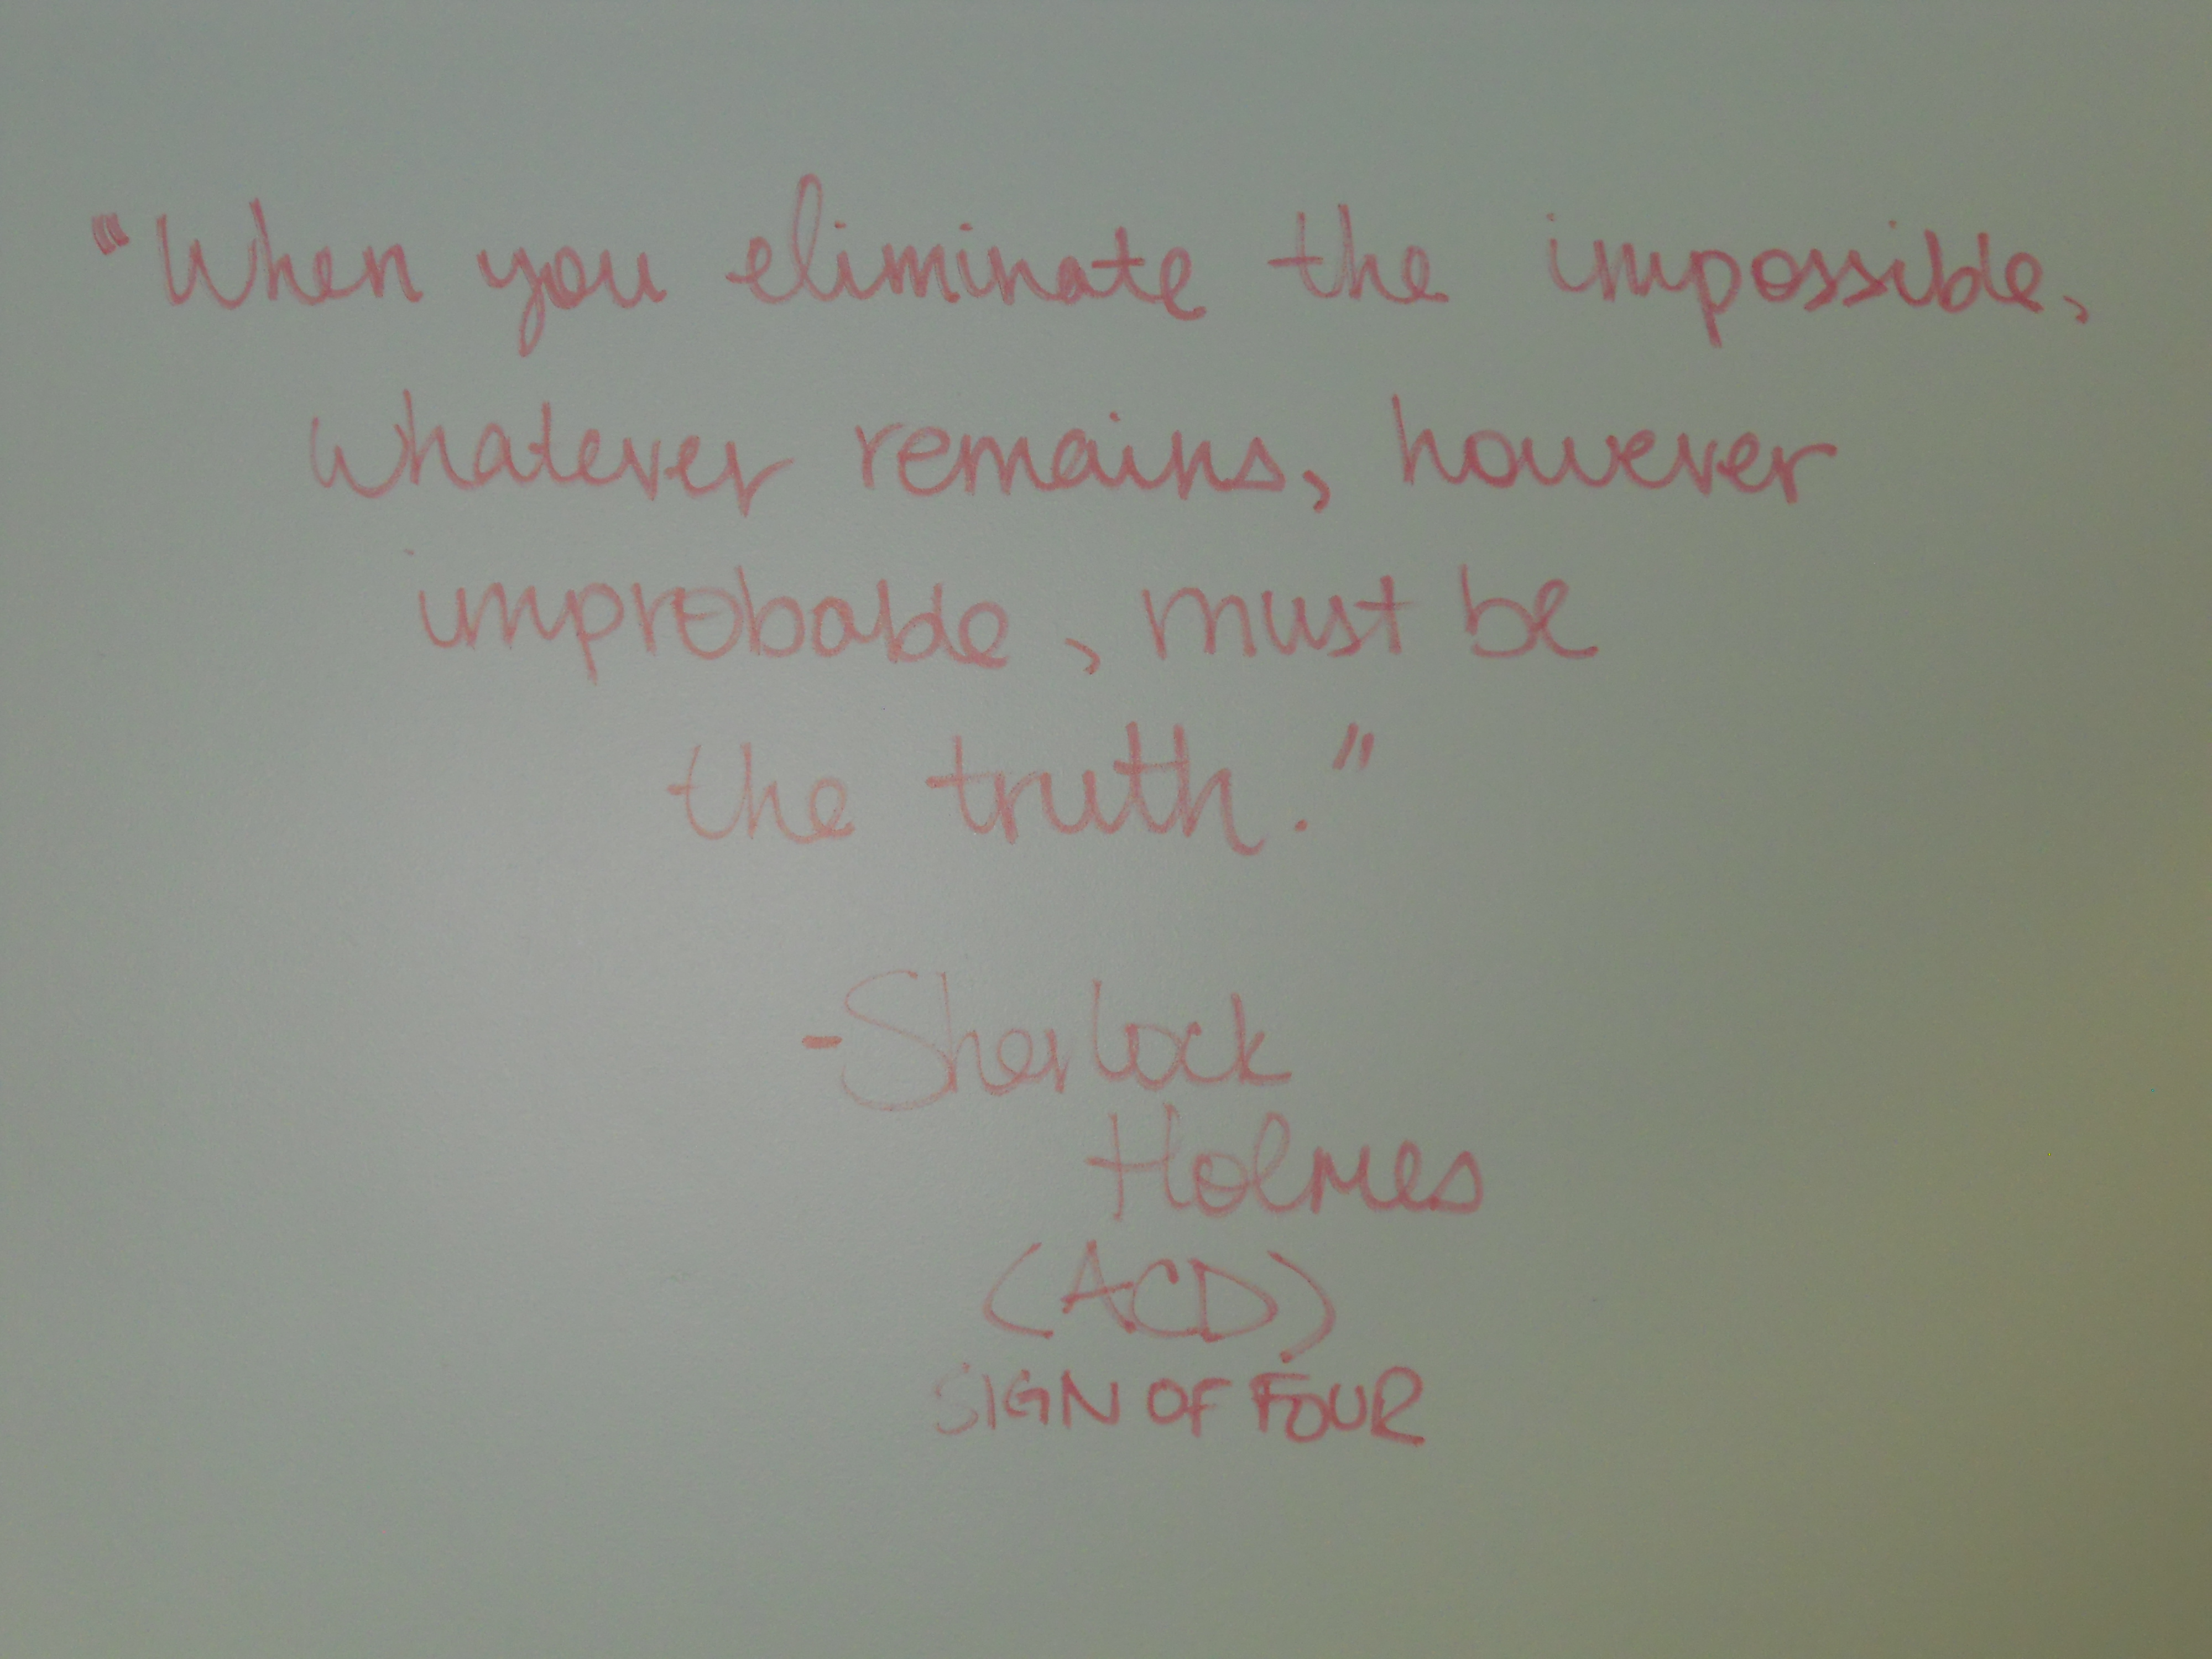 "When you eliminate the impossible,
whatever remains, however
improbable, must be
the truth."
-Sherlock
Holmes
(ACD)
SIGN OF FOUR